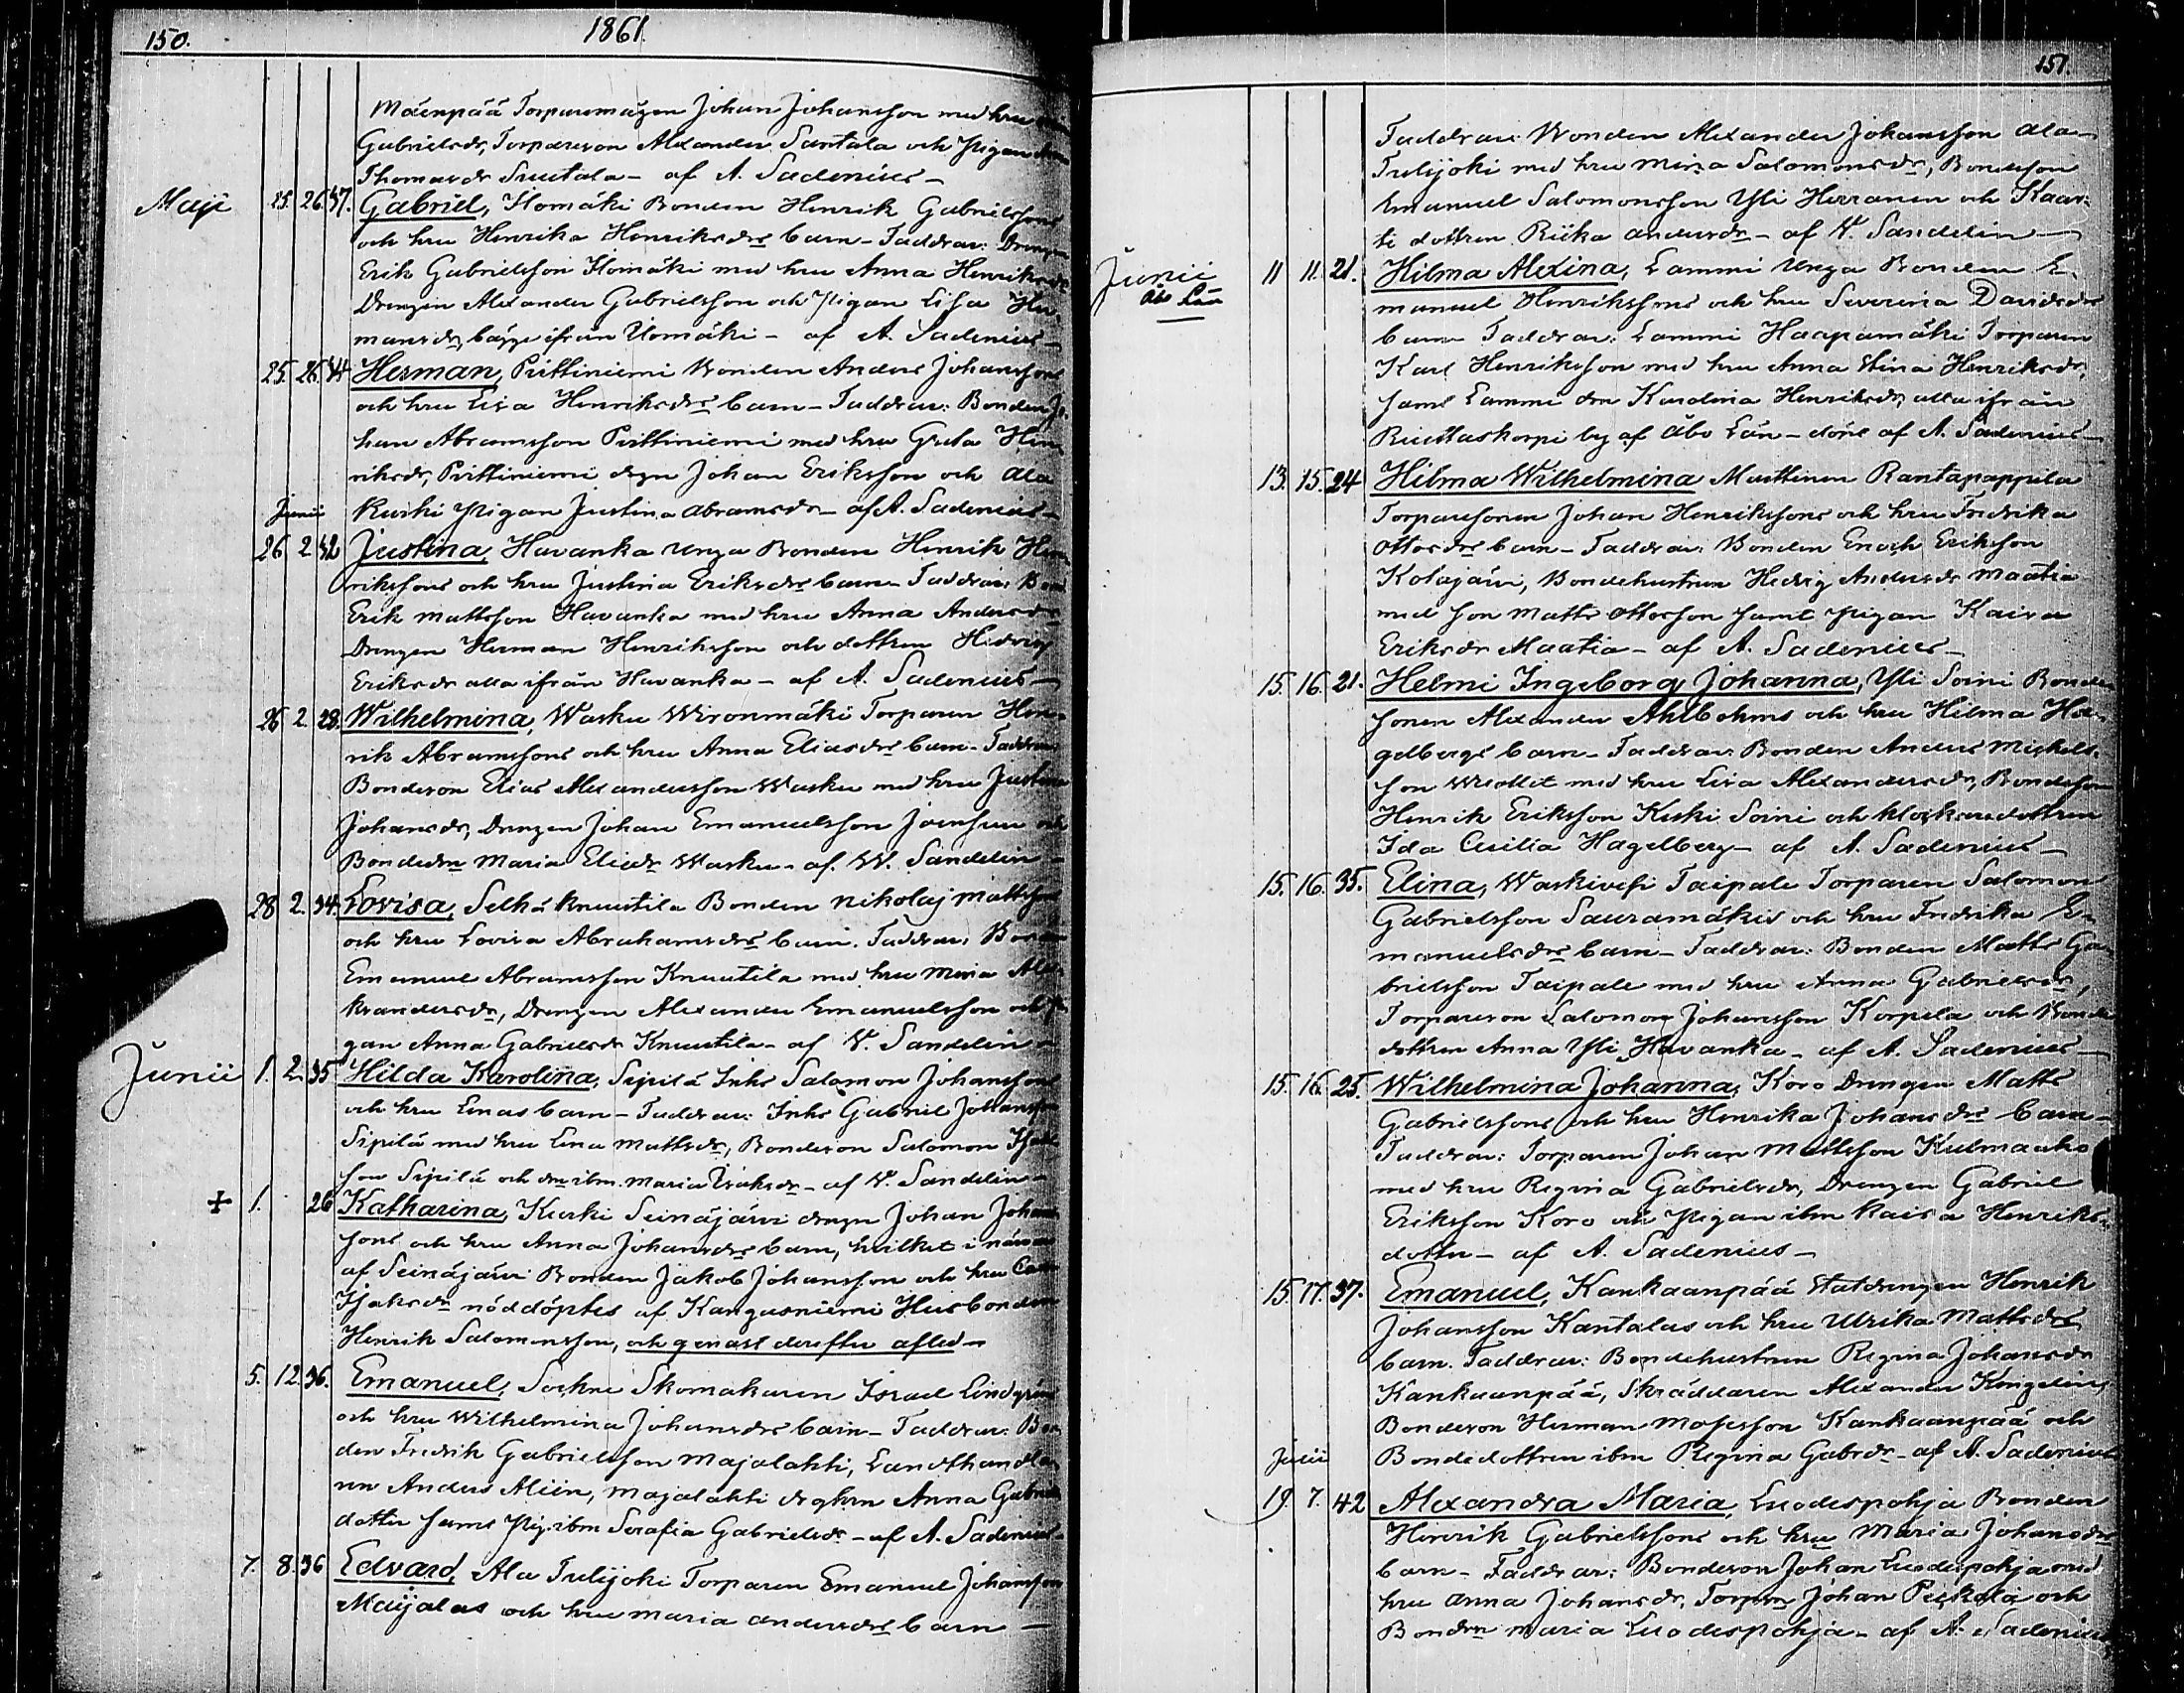 150.
1861.
Mäenpää Torparemågen Johan Johansson med hru
Gabrielsdr, Torpareson Alexander Santala och Pigan
Thomasdr Santala - af A. Sadenius -
Maji 25. 26. 37. Gabriel, Ilomäki Bonden Henrik Gabrielssons
och hru Henrika Henriksdrs barn - Faddrar: Drengen
Erik Gabrielsson Ilomäki med hru Anna Henriksdr
Drengen Alexander Gabrielsson och Pigan Lisa Her-
mansdr, bägge ifrån Ilomäki - af A. Sadenius -
25. 26. 44 Herman, Pirttiniemi Bonden Anders Johanssons
och hru Lisa Henriksdrs barn - Faddrar: Bonden Jo-
han Abramsson Pirttiniemi med hru Greta Hen-
riksdr, Pirttiniemi drgn Johan Eriksson och Ala
Junii Kuski Pigan Justina Abramsdr - af A. Sadenius -
26 2 42 Justina, Havanka unga Bonden Henrik Hen-
rikssons och hru Justina Eriksdrs barn Faddrar: Bon
Erik Mattsson Havanka med hru Anna Andersdr
Drengen Herman Henriksson och dottren Hedvig
Eriksdr alla ifrån Havanka - af A. Sadenius -
26 2 28. Wilhelmina, Wasku Wironmäki Torparen Hen-
rik Abramssons och hru Anna Eliasdrs barn - Faddrar
Bondeson Elias Alexandersson Wasku med hru Justina
Johansdr, Drengen Johan Emanuelsson Joensuu och
Bondedrn Maria Eliedr Wasku - af W. Sandelin -
28 2. 34. Lovisa, Selkä Knuutila Bonden Nikolaj Mattssons
och hru Lovisa Abrahamsdrs barn. Faddrar: Bonden
Emanuel Abramsson Knuutila med hru Maria Ale-
xandersdr, Drengen Alexander Emanuelsson och Pi-
gan Anna Gabrielsdr Knuutila - af W. Sandelin -
Junii 1. 2. 35 Hilda Karolina, Sipilä Inhs Salomon Johanssons
och hru Lenas barn - Faddrar: Inhs Gabriel Johansson
Sipilä med hru Lena Mattsdr, Bondeson Salomon Isaks-
son Sipilä och drn ibm. Maria Isaksdr - af W. Sandelin -
+ 1. 26 Katharina, Kuski Seinäjärvi drngn Johan Johans-
sons och hru Anna Johansdrs barn, hvilket i närvaro
af Seinäjärvi Bonden Jakob Johansson och hru
Isaksdr nöddöptes af Kangasniemi Husbonden
Henrik Salomonsson, och genast derefter afled -
5. 12. 36. Emanuel, Sockne Skomakaren Israel Lindgrens
och hru Wilhelmina Johansdrs barn - Faddrar: Bon-
den Fredrik Gabrielsson Majalahti, Landthandla-
ren Anders Alien, Majalahti drghrn Anna Gabriels
dotter samt Pig. ibm Serafia Gabrielsdr - af A. Sadenius -
7. 8. 36 Edvard, Ala Tulijoki Torparen Emanuel Johansson
Maijalas och hru Maria Andersdrs barn -
151.
Faddrar: Bonden Alexander Johansson Ala-
Tulijoki med hru Maria Salomonsdr, Bondeson
Emanuel Salomonsson Yli Herranen och Kaar-
ti dottren Riika Andersdr - af W. Sandelin -
Junii Åbo Län 11 11. 21. Hilma Alexina, Lammi Unga Bonden E-
manuel Henrikssons och hru Severina Davidsdrs
barn Faddrar: Lammi Haapamäki Torparen
Karl Henriksson med hru Anna Stina Henriksdr,
samt Lammi drn Karolina Henriksdr, alla ifrån
by af Åbo Län - döpt af A. Sadenius -
13. 15. 24 Hilma Wilhelmina Marttinen Rantapappila
Torparesonen Johan Henrikssons och hru Fredrika
Ottosdrs barn - Faddrar: Bonden Enoch Eriksson
Kolajärvi, Bondehustrun Hedvig Andersdr Maatia
med son Matts Ottosson samt Pigan Kaisa
Eriksdr Maatia - af A. Sadenius -
15. 16. 21. Helmi Ingeborg Johanna, Yli Soini Bonde
sonen Alexander Ahlbohms och hru Hilma Ha-
gelbergs barn - Faddrar: Bonden Anders Mickels-
son med hru Lisa Alexandersdr, Bondeson
Henrik Eriksson Keski Soini och Klockaredottren
Ida Cecilia Hagelberg - af A. Sadenius -
15. 16. 35. Elina, Waskivesi Taipale Torparen Salomon
Gabrielsson Sauramäkis och hru Fredrika E-
manuelsdrs barn - Faddrar: Bonden Matts Ga-
brielsson Taipale med hru Anna Gabrielsdr,
Torpareson Salomon Johansson Korpela och Bonde
dottren Anna Yli Havanka - af A. Sadenius -
15. 16. 25. Wilhelmina Johanna, Koro Drengen Matts
Gabrielssons och hru Henrika Johansdrs barn -
Faddrar: Torparen Johan Mattsson Kulmaaho
med hru Regina Gabrielsdr, Drengen Gabriel
Eriksson Koro och Pigan ibm Kaisa Henriks-
dotter - af A. Sadenius -
15. 17. 37. Emanuel, Kankaanpää Statdrengen Henrik
Johansson Kantalas och hru Ulrika Mattsdrs
barn. Faddrar: Bondehustrun Regina Johansdr
Kankaanpää, Skräddaren Alexander Kengelin
Bondeson Herman Mosesson Kankaanpää och
Julii Bondedottren ibm Regina Gabrsdr - af A. Sadenius
19. 7. 42 Alexandra Maria, Luodespohja Bonden
Henrik Gabrielssons och hru Maria Johansdrs
barn - Faddrar: Bondeson Johan Luodespohja med
hru Anna Johansdr, Torprn Johan Peskola och
Bondrn Maria Luodespohja - af A. Sadenius